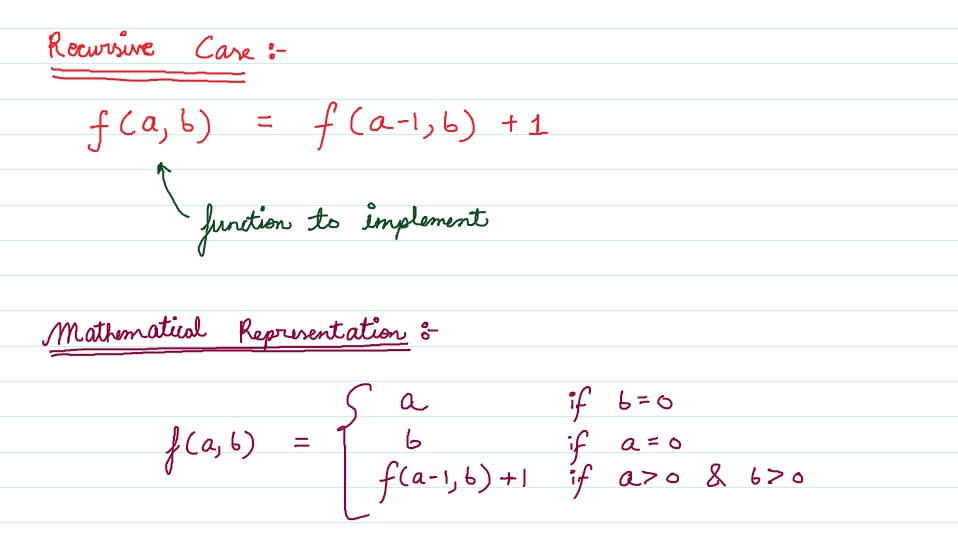 Recursive Case :-
f(a, b) = f(a-1, b) + 1
function to implement
Mathematical Representation :-
a if b=0
f(a, b) = { b if a=0
f(a-1, b) + 1 if a>0 & b>0